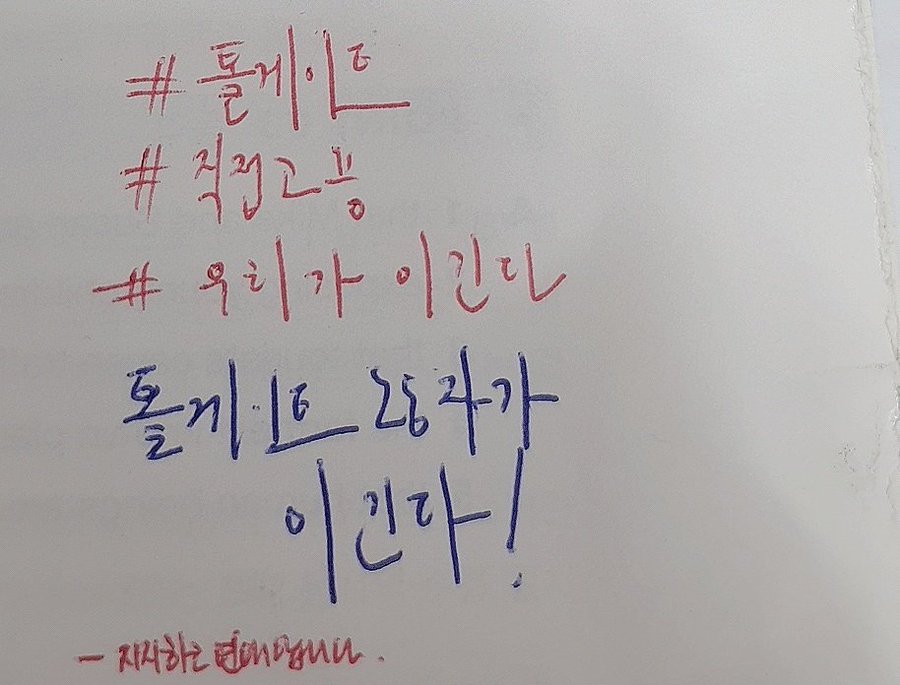 # 톨게이트
# 직접고용
# 우리가 이긴다
톨게이트 노동자가
이긴다!
- 지지하고 연대합니다.